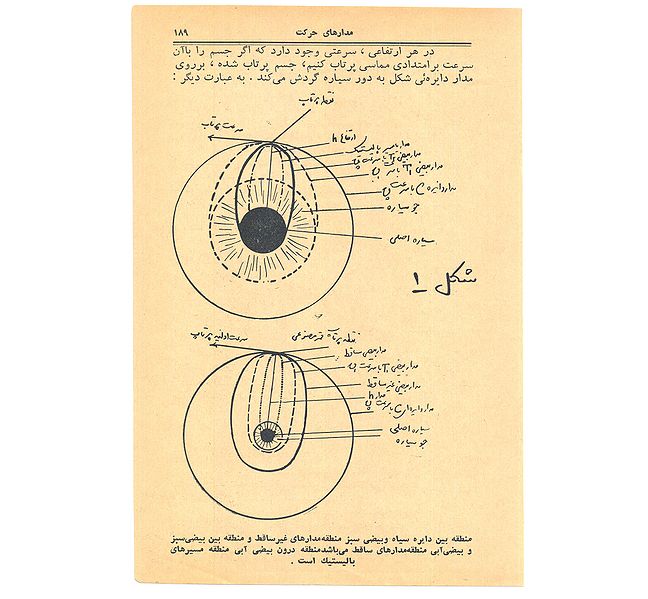 مدارهای حرکت
۱۸۹
در هر ارتفاعی ، سرعتی وجود دارد که اگر جسم را باآن
سرعت برامتدادی مماسی پرتاب کنیم، جسم پرتاب شده ، برروی
مدار دایره‌ئی شکل به دور سیاره گردش می‌کند . به عبارت دیگر :
نقطه پرتاب
سرعت پرتاب
ارتفاع h
مدار یا مسیر بالیستیک
مدار بیضی T₂ با سرعت
مدار بیضی T₁ با سرعت
مدار دایره C با سرعت
جو سیاره
سیاره اصلی
شکل ۱
نقطه پرتاب قمر مصنوعی
سرعت اولیه پرتاب
مدار بیضی ساقط
مدار بیضی T₁ با سرعت
مدار بیضی غیر ساقط
مدار h
مدار دایره‌ای C با سرعت
سیاره اصلی
جو سیاره
منطقه بین دایره سیاه وبیضی سبز منطقه‌مدارهای غیرساقط و منطقه بین بیضی‌سبز
و بیضی‌آبی منطقه‌مدارهای ساقط می‌باشدمنطقه درون بیضی آبی منطقه مسیرهای
بالیستیك است .